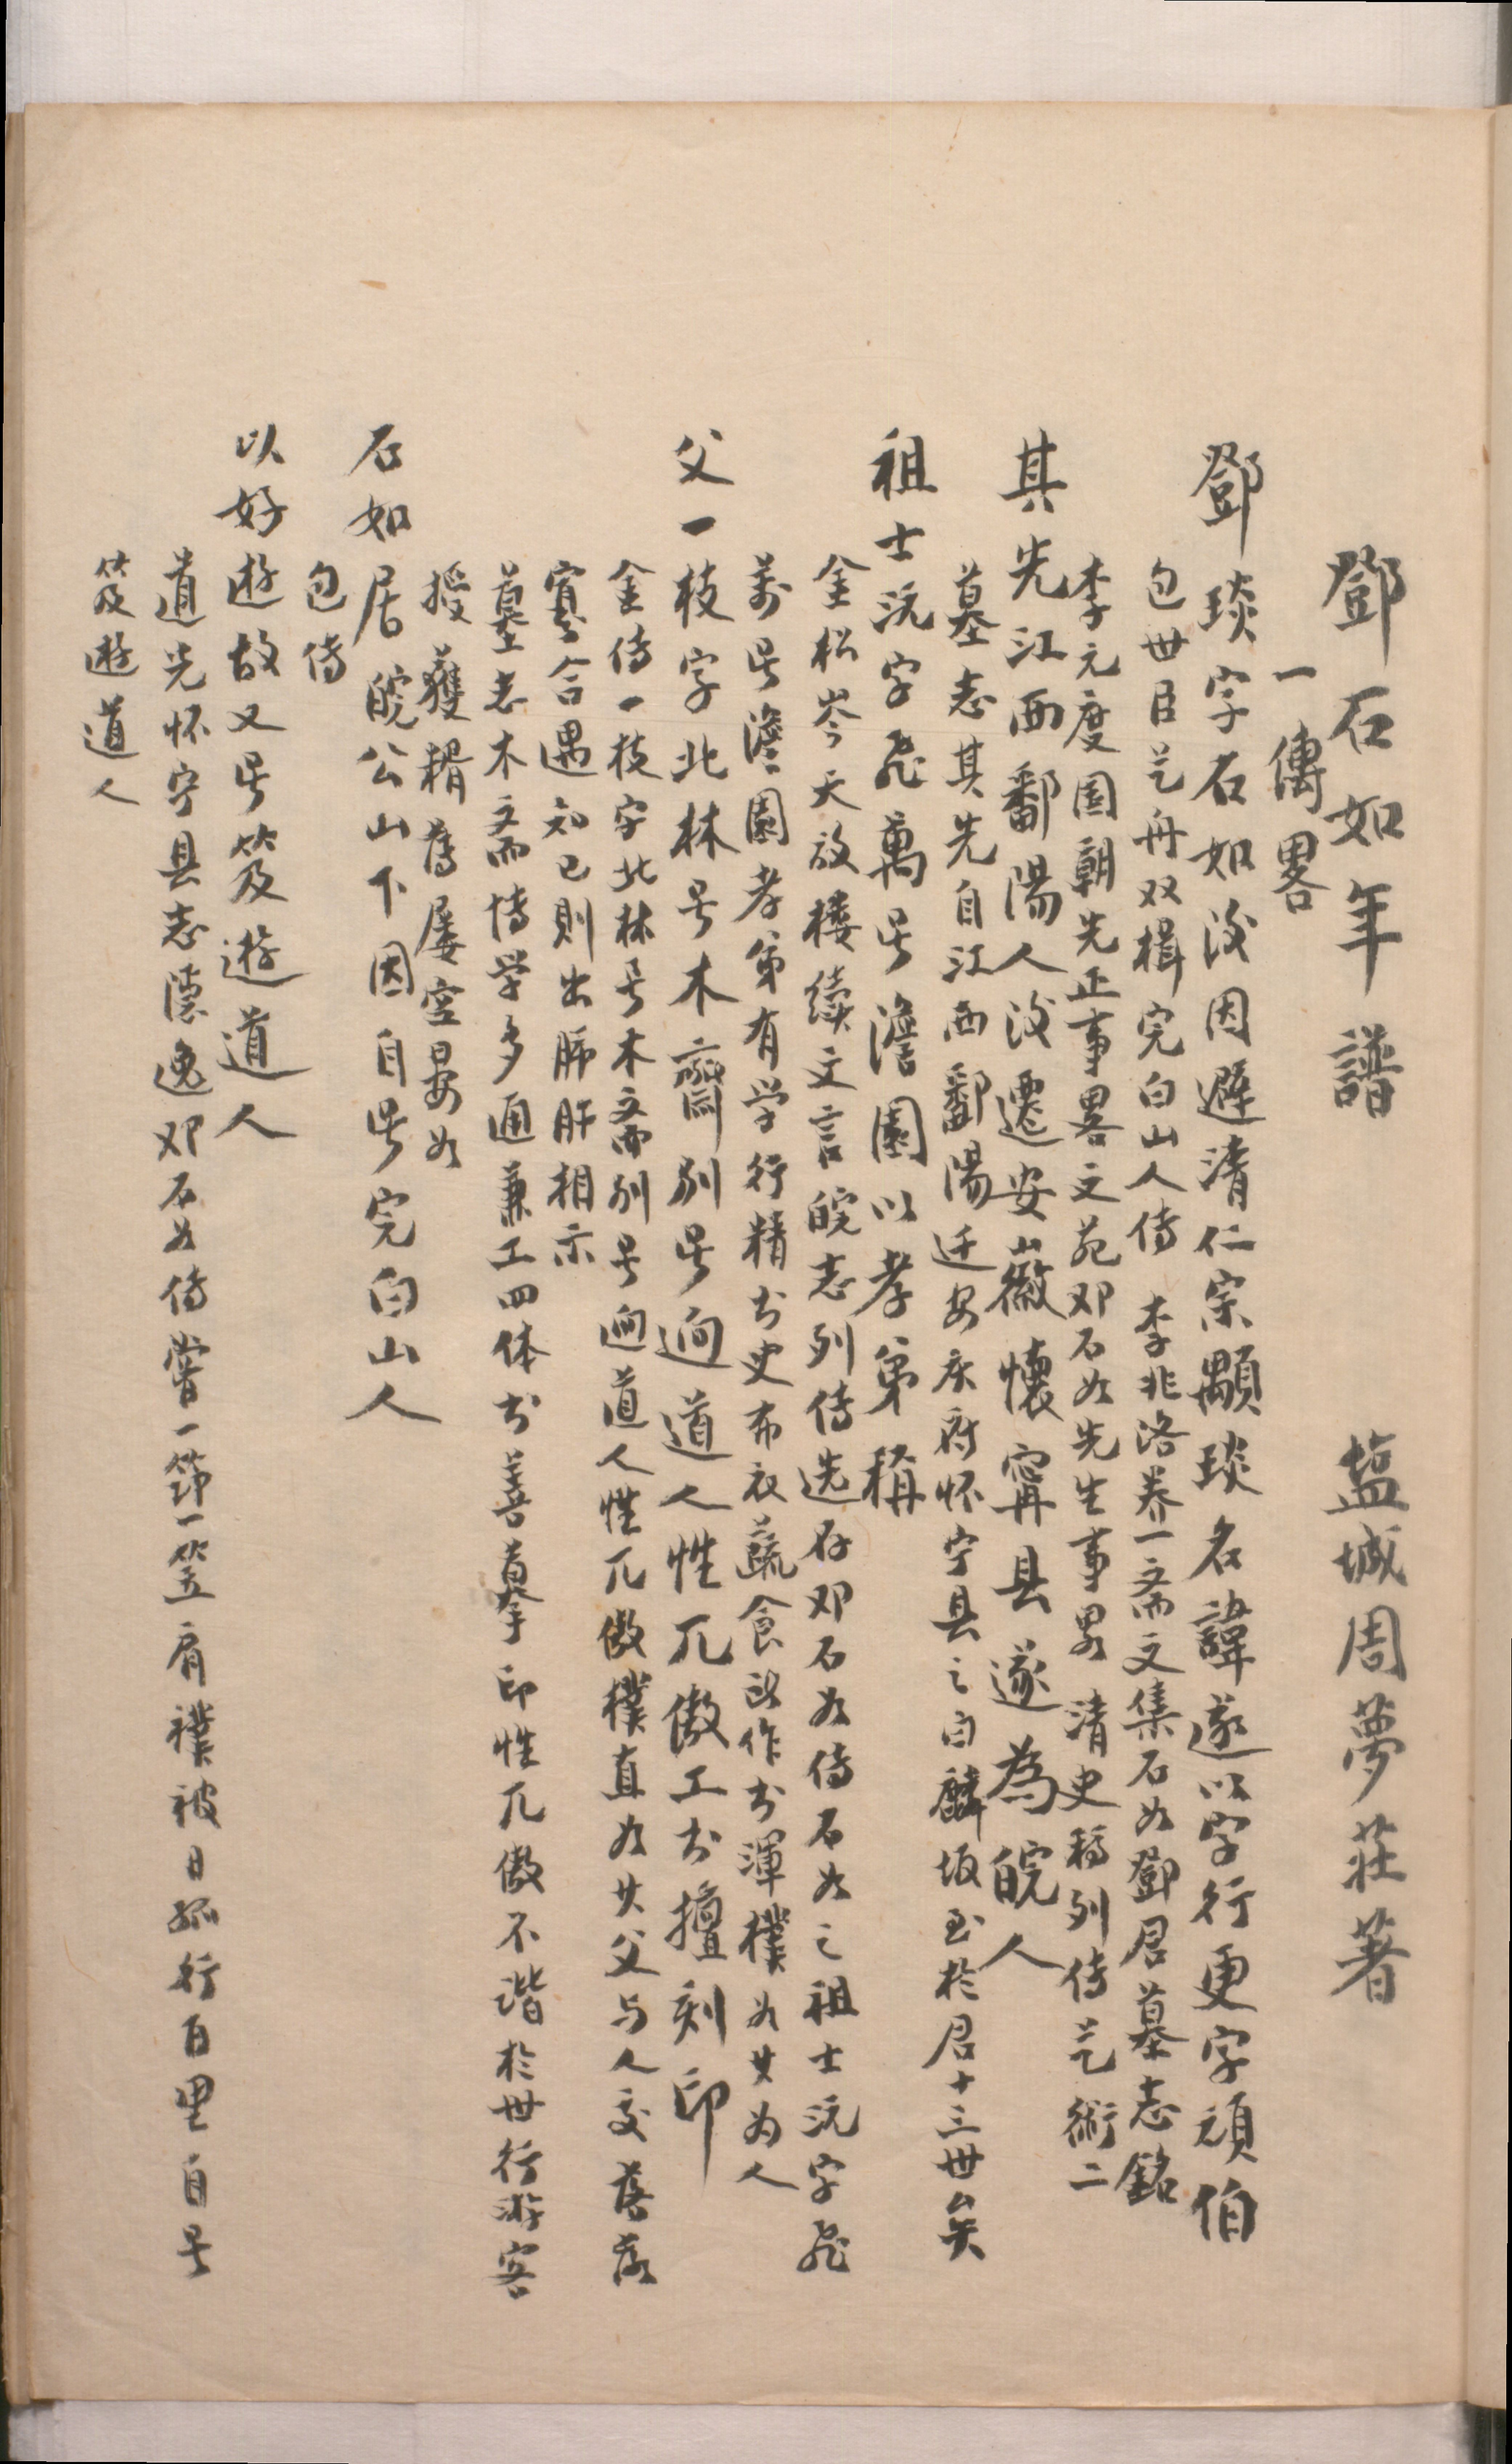 鄧石如年譜 盐城周夢莊著
一傳畧
鄧琰字石如後因避清仁宗顒琰名諱遂以字行更字頑伯
包世臣艺舟双楫完白山人传 李兆洛养一斋文集石如鄧君墓志銘
李元度国朝先正事畧文苑邓石如先生事畧 清史稿列传艺術二
其先江西鄱陽人後遷安徽懷甯县遂為皖人
墓志其先自江西鄱陽迁安庆府怀宁县之白麟坂至於君十三世矣
祖士沅字飛萬号澹園以孝弟稱
金松岑天放楼續文言皖志列传选存邓石如传石如之祖士沅字飛
萬号澹園孝弟有学行精书史布衣蔬食所作书渾樸如其为人
父一枝字北林号木齋别号迥道人性兀傲工书擅刻印
金传一枝字北林号木斋别号迥道人性兀傲樸直如其父与人交落落
寡合遇知己則出肺肝相示
墓志木斋博学多通兼工四体书善摹印性兀傲不谐於世行游客
授獲糈舊屡空晏如
石如居皖公山下因自号完白山人
包传
以好遊故又号笈遊道人
道光怀宁县志隱逸邓石如传嘗一筇一笠肩襆被日孤行百里自号
笈遊道人